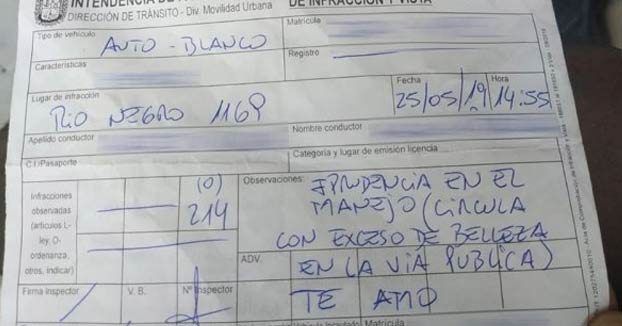 INTENDENCIA DE
DE INFRACCIÓN Y VISTA
DIRECCIÓN DE TRÁNSITO - Div. Movilidad Urbana
Tipo de vehículo
AUTO - BLANCO
Matrícula
Registro
Características
Lugar de infracción
RIO NEGRO 1169
Fecha
25/05/19
Hora
14:55
Apellido conductor
Nombre conductor
C.I/Pasaporte
Categoría y lugar de emisión licencia
Infracciones
observadas
(artículos L-
ley, O-
ordenanza,
otros, indicar)
(O)
214
Observaciones:
IPRUDENCIA EN EL
MANEJO (CIRCULA
CON EXCESO DE BELLEZA
EN LA VIA PUBLICA)
TE AMO
ADV.
Firma Inspector
V. B.
Nº Inspector
Matrícula